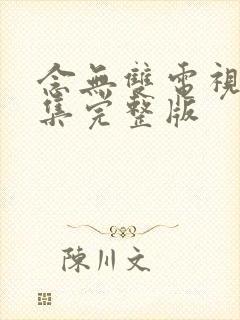 念無雙電視
集完整版
陳川文